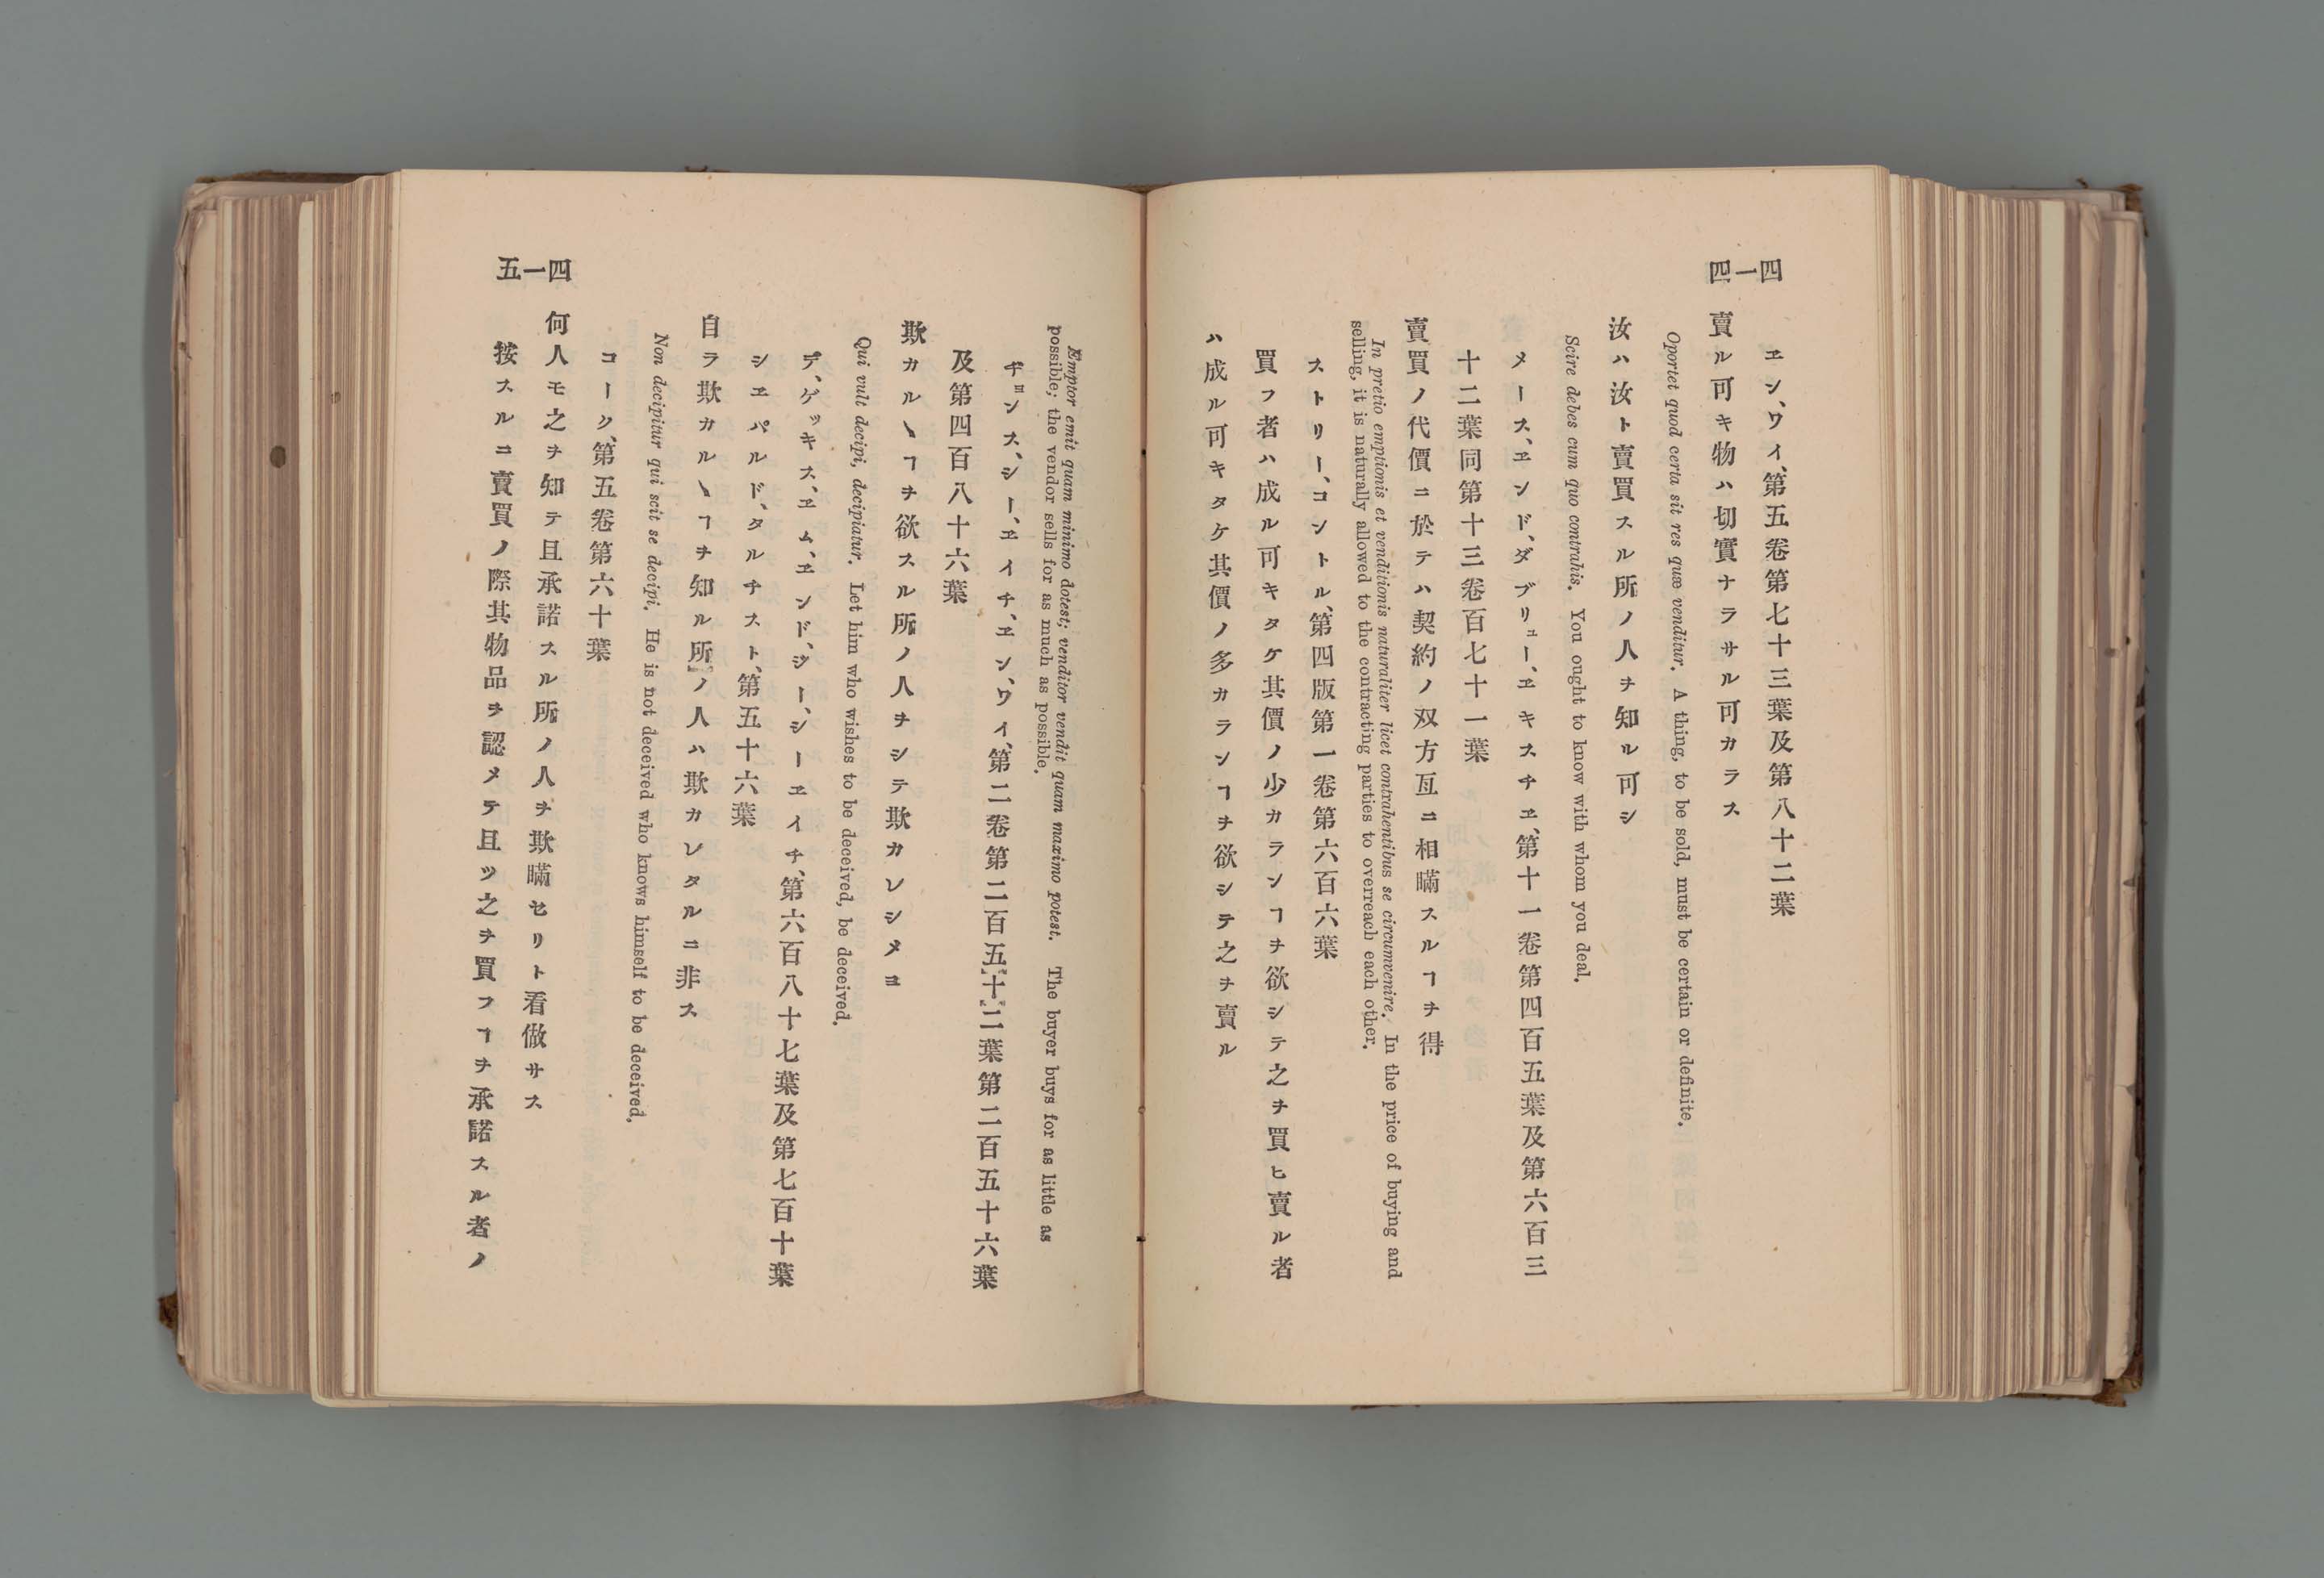 四一四
ヱン、ワイ、第五卷第七十三葉及第八十二葉
賣ル可キ物ハ切實ナラサル可カラス
Oportet quod certa sit res quæ venditur. A thing, to be sold, must be certain or definite.
汝ハ汝ト賣買スル所ノ人ヲ知ル可シ
Scire debes cum quo contrahis. You ought to know with whom you deal.
メース、ヱンド、ダブリユー、ヱキスチヱ、第十一卷第四百五葉及第六百三
十二葉同第十三卷百七十一葉
賣買ノ代價ニ於テハ契約ノ双方互ニ相瞞スルヿヲ得
In pretio emptionis et venditionis naturaliter licet contrahentibus se circumvenire. In the price of buying and
selling, it is naturally allowed to the contracting parties to overreach each other.
ストリー、コントル、第四版第一卷第六百六葉
買フ者ハ成ル可キタケ其價ノ少カランヿヲ欲シテ之ヲ買ヒ賣ル者
ハ成ル可キタケ其價ノ多カランヿヲ欲シテ之ヲ賣ル
四一五
Emptor emit quam minimo dotest; venditor vendit quam maximo potest. The buyer buys for as little as
possible; the vendor sells for as much as possible.
チョンス、シー、ヱイチ、ヱン、ワイ、第二卷第二百五十二葉第二百五十六葉
及第四百八十六葉
欺カルヽヿヲ欲スル所ノ人ヲシテ欺カレシメヨ
Qui vult decipi, decipiatur. Let him who wishes to be deceived, be deceived.
デ、ゲッキス、ヱム、ヱンド、ジー、シーヱイチ、第六百八十七葉及第七百十葉
シヱパルド、タルチスト、第五十六葉
自ラ欺カルヽヿヲ知ル所ノ人ハ欺カレタルニ非ス
Non decipitur qui scit se decipi. He is not deceived who knows himself to be deceived.
コーク、第五卷第六十葉
何人モ之ヲ知テ且承諾スル所ノ人ヲ欺瞞セリト看做サス
按スルニ賣買ノ際其物品ヲ認メテ且ツ之ヲ買フヿヲ承諾スル者ノ